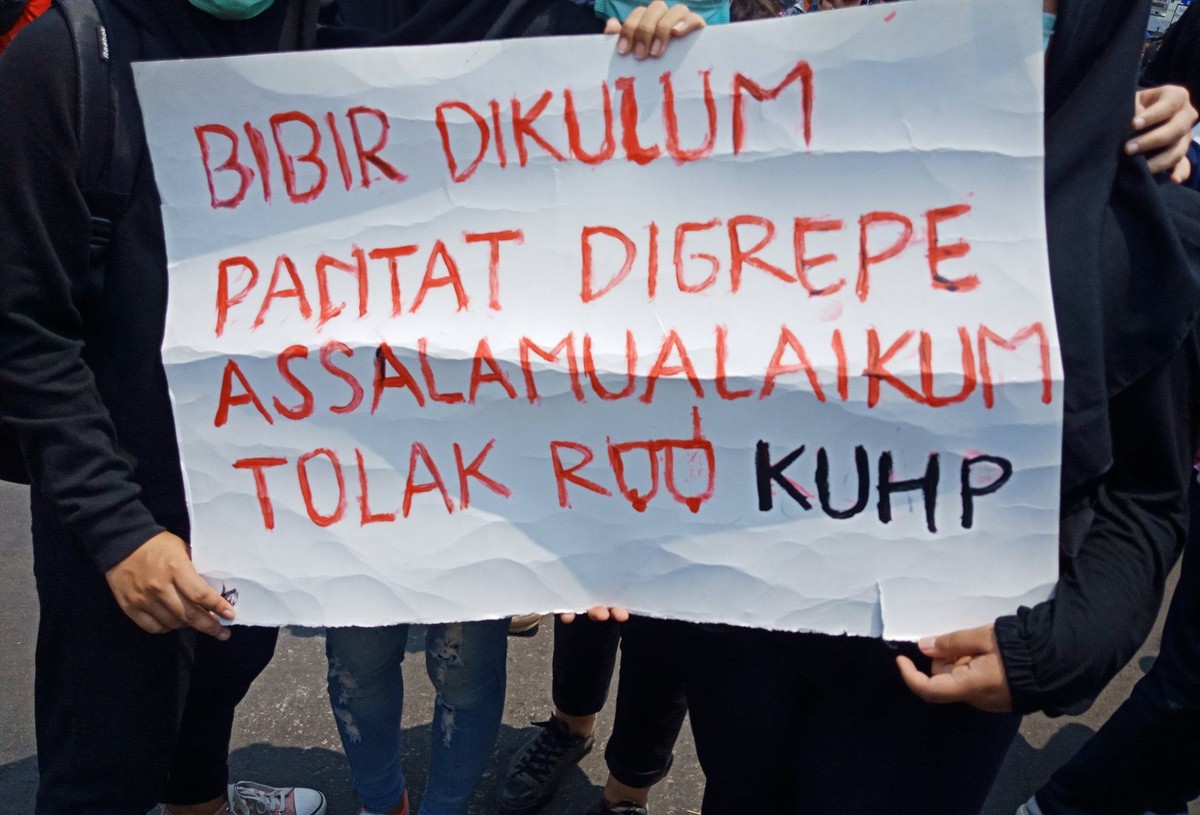 BIBIR DIKULUM
PANTAT DIGREPE
ASSALAMUALAIKUM
TOLAK RUU KUHP